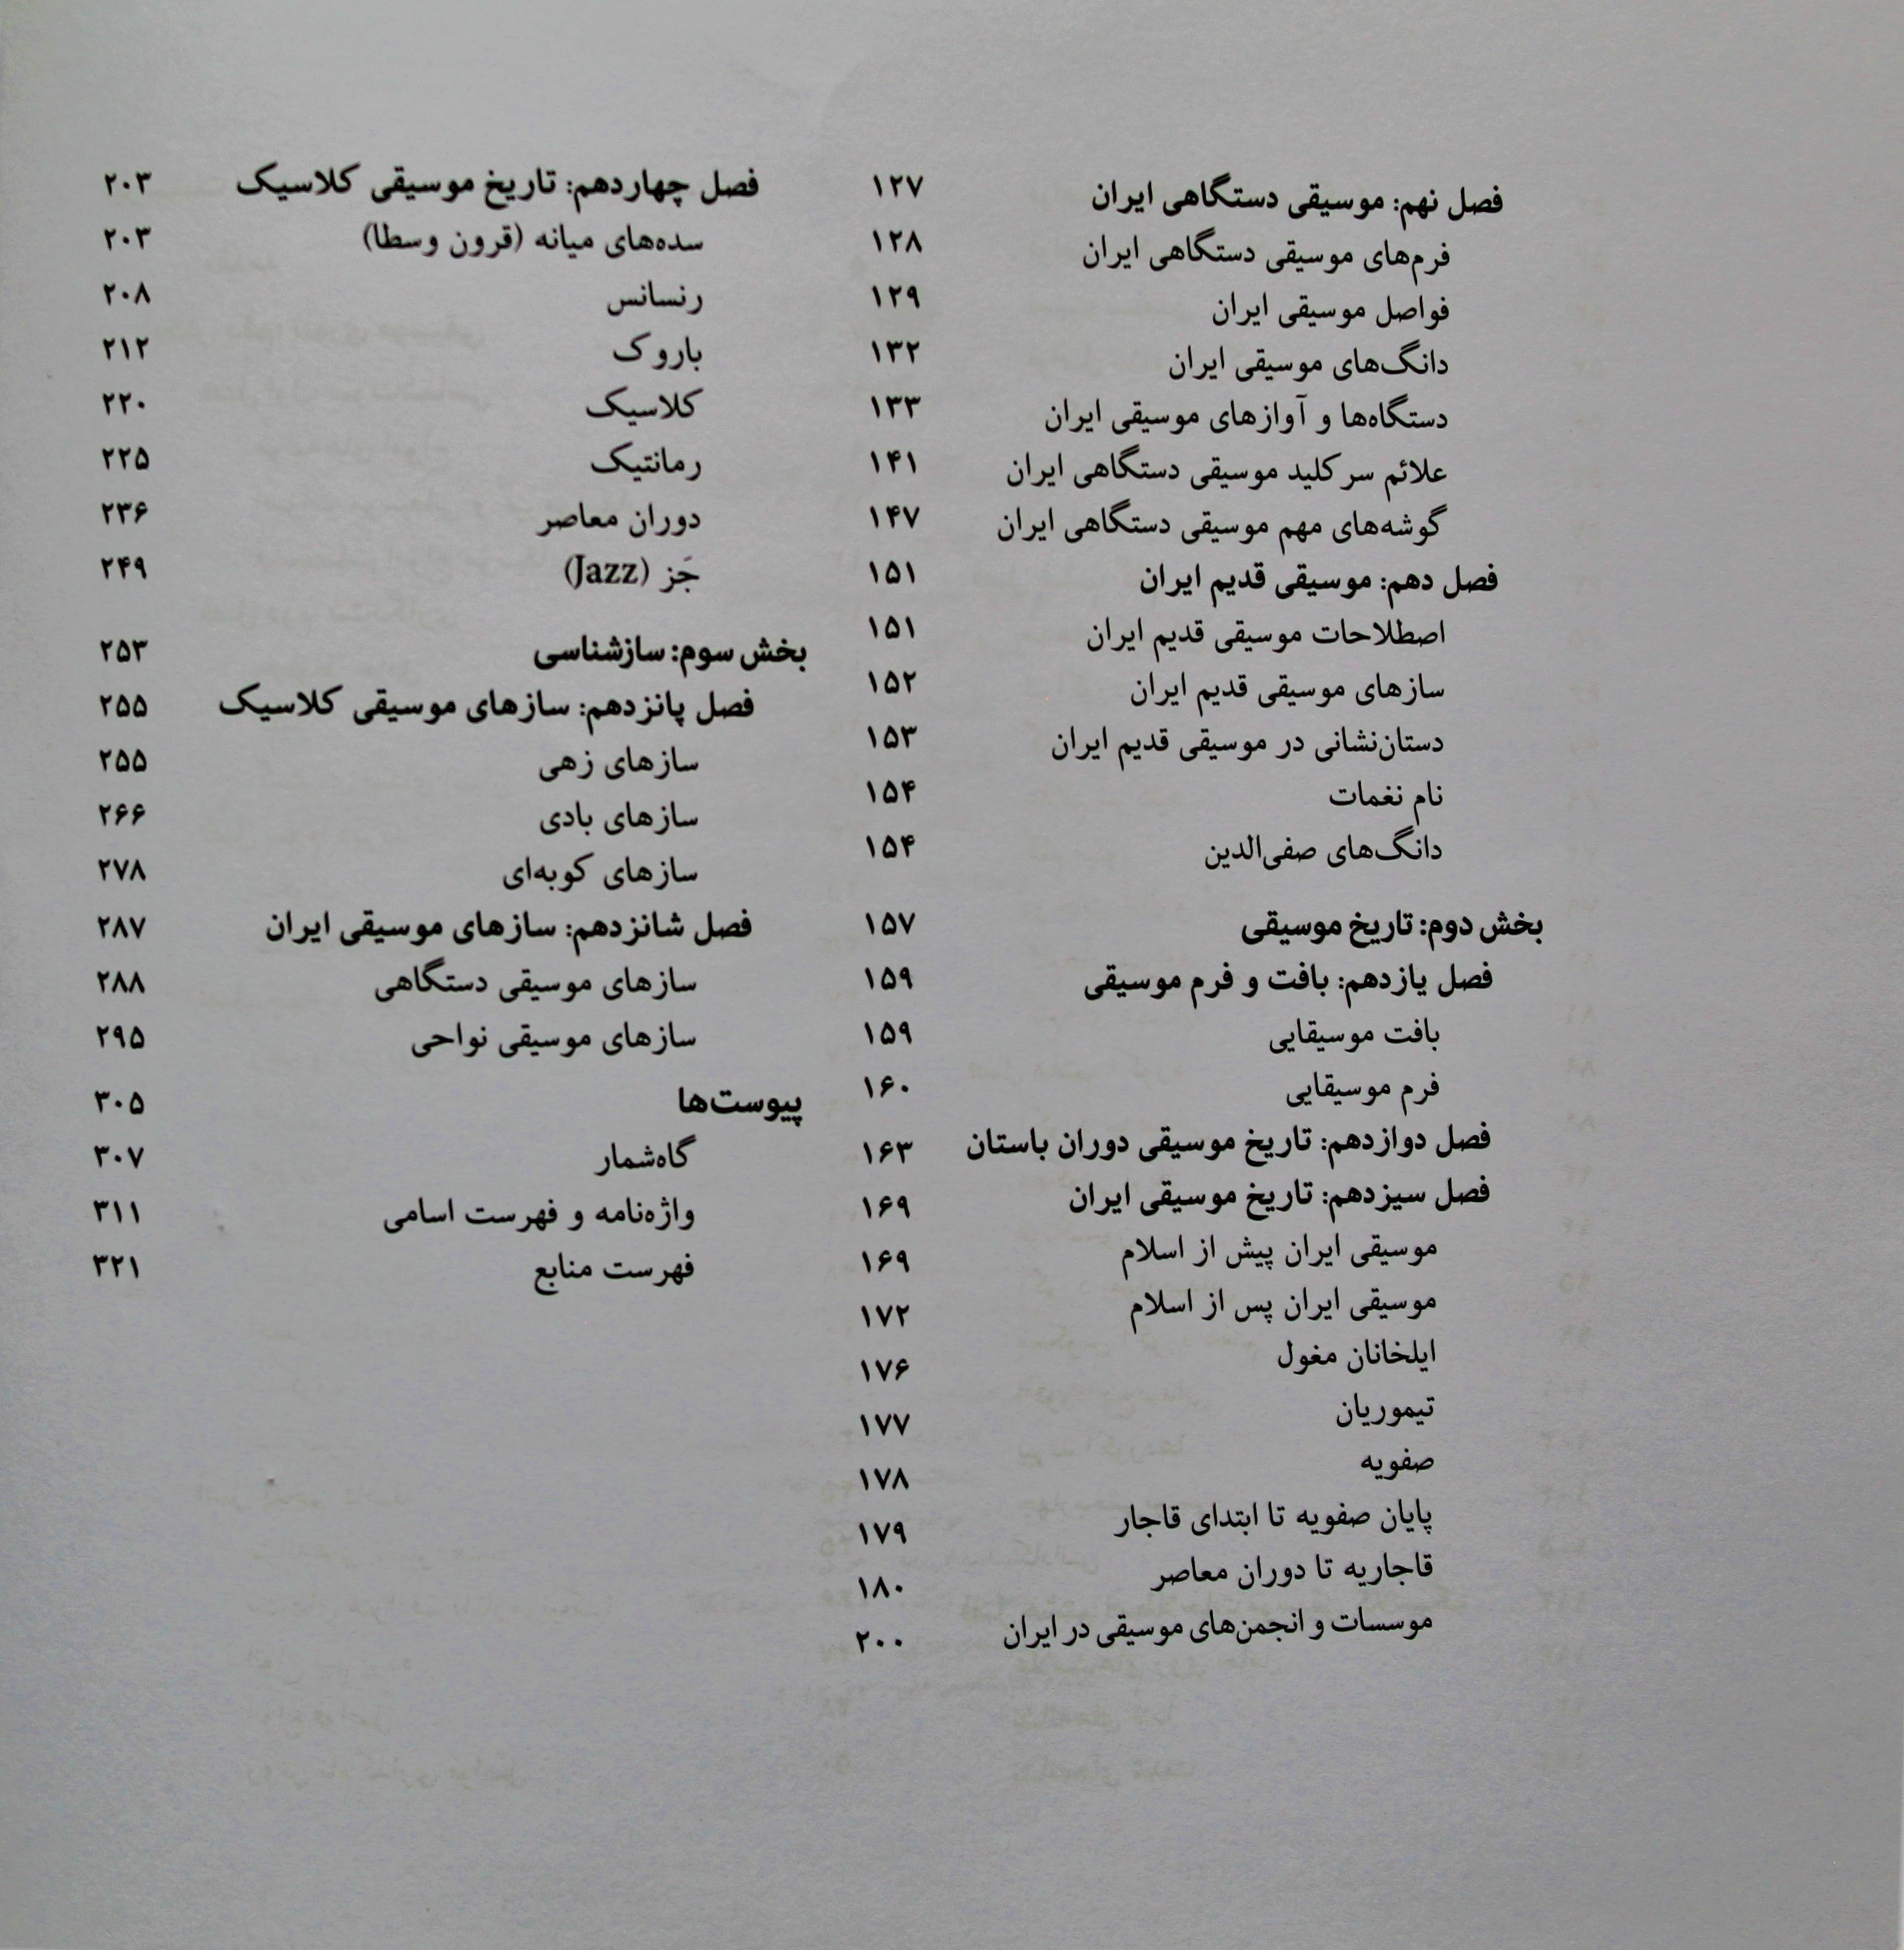 فصل نهم: موسیقی دستگاهی ایران ۱۲۷
فرم‌های موسیقی دستگاهی ایران ۱۲۸
فواصل موسیقی ایران ۱۲۹
دانگ‌های موسیقی ایران ۱۳۲
دستگاه‌ها و آوازهای موسیقی ایران ۱۳۳
علائم سرکلید موسیقی دستگاهی ایران ۱۴۱
گوشه‌های مهم موسیقی دستگاهی ایران ۱۴۷
فصل دهم: موسیقی قدیم ایران ۱۵۱
اصطلاحات موسیقی قدیم ایران ۱۵۱
سازهای موسیقی قدیم ایران ۱۵۲
دستان‌نشانی در موسیقی قدیم ایران ۱۵۳
نام نغمات ۱۵۴
دانگ‌های صفی‌الدین ۱۵۴
بخش دوم: تاریخ موسیقی ۱۵۷
فصل یازدهم: بافت و فرم موسیقی ۱۵۹
بافت موسیقایی ۱۵۹
فرم موسیقایی ۱۶۰
فصل دوازدهم: تاریخ موسیقی دوران باستان ۱۶۳
فصل سیزدهم: تاریخ موسیقی ایران ۱۶۹
موسیقی ایران پیش از اسلام ۱۶۹
موسیقی ایران پس از اسلام ۱۷۲
ایلخانان مغول ۱۷۶
تیموریان ۱۷۷
صفویه ۱۷۸
پایان صفویه تا ابتدای قاجار ۱۷۹
قاجاریه تا دوران معاصر ۱۸۰
موسسات و انجمن‌های موسیقی در ایران ۲۰۰
فصل چهاردهم: تاریخ موسیقی کلاسیک ۲۰۳
سده‌های میانه (قرون وسطا) ۲۰۳
رنسانس ۲۰۸
باروک ۲۱۲
کلاسیک ۲۲۰
رمانتیک ۲۲۵
دوران معاصر ۲۳۶
جَز (Jazz) ۲۴۹
بخش سوم: سازشناسی ۲۵۳
فصل پانزدهم: سازهای موسیقی کلاسیک ۲۵۵
سازهای زهی ۲۵۵
سازهای بادی ۲۶۶
سازهای کوبه‌ای ۲۷۸
فصل شانزدهم: سازهای موسیقی ایران ۲۸۷
سازهای موسیقی دستگاهی ۲۸۸
سازهای موسیقی نواحی ۲۹۵
پیوست‌ها ۳۰۵
گاه‌شمار ۳۰۷
واژه‌نامه و فهرست اسامی ۳۱۱
فهرست منابع ۳۲۱